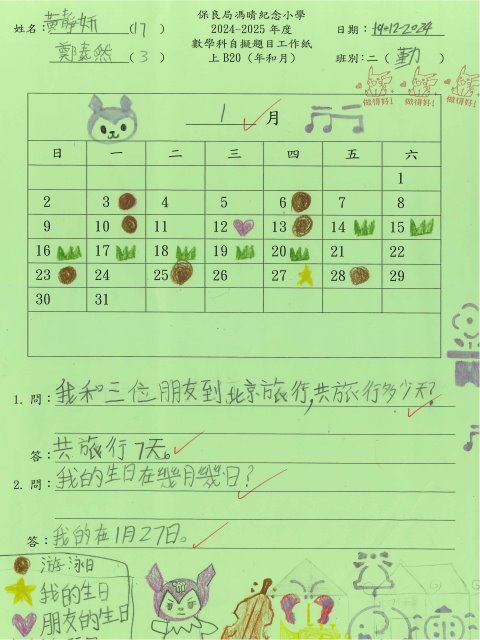 保良局馮晴紀念小學
2024-2025 年度
數學科自擬題目工作紙
上 B20（年和月）
姓名：黃靜妍 (17)
(3)
日期：19-12-2024
班別：二（勤）
做得好! 做得好! 做得好!
1 月
日 一 二 三 四 五 六
1
2 3 4 5 6 7 8
9 10 11 12 13 14 15
16 17 18 19 20 21 22
23 24 25 26 27 28 29
30 31
1. 問：我和三位朋友到北京旅行,共旅行多少天?
答：共旅行7天。
2. 問：我的生日在幾月幾日?
答：我的在1月27日。
游泳日
我的生日
朋友的生日